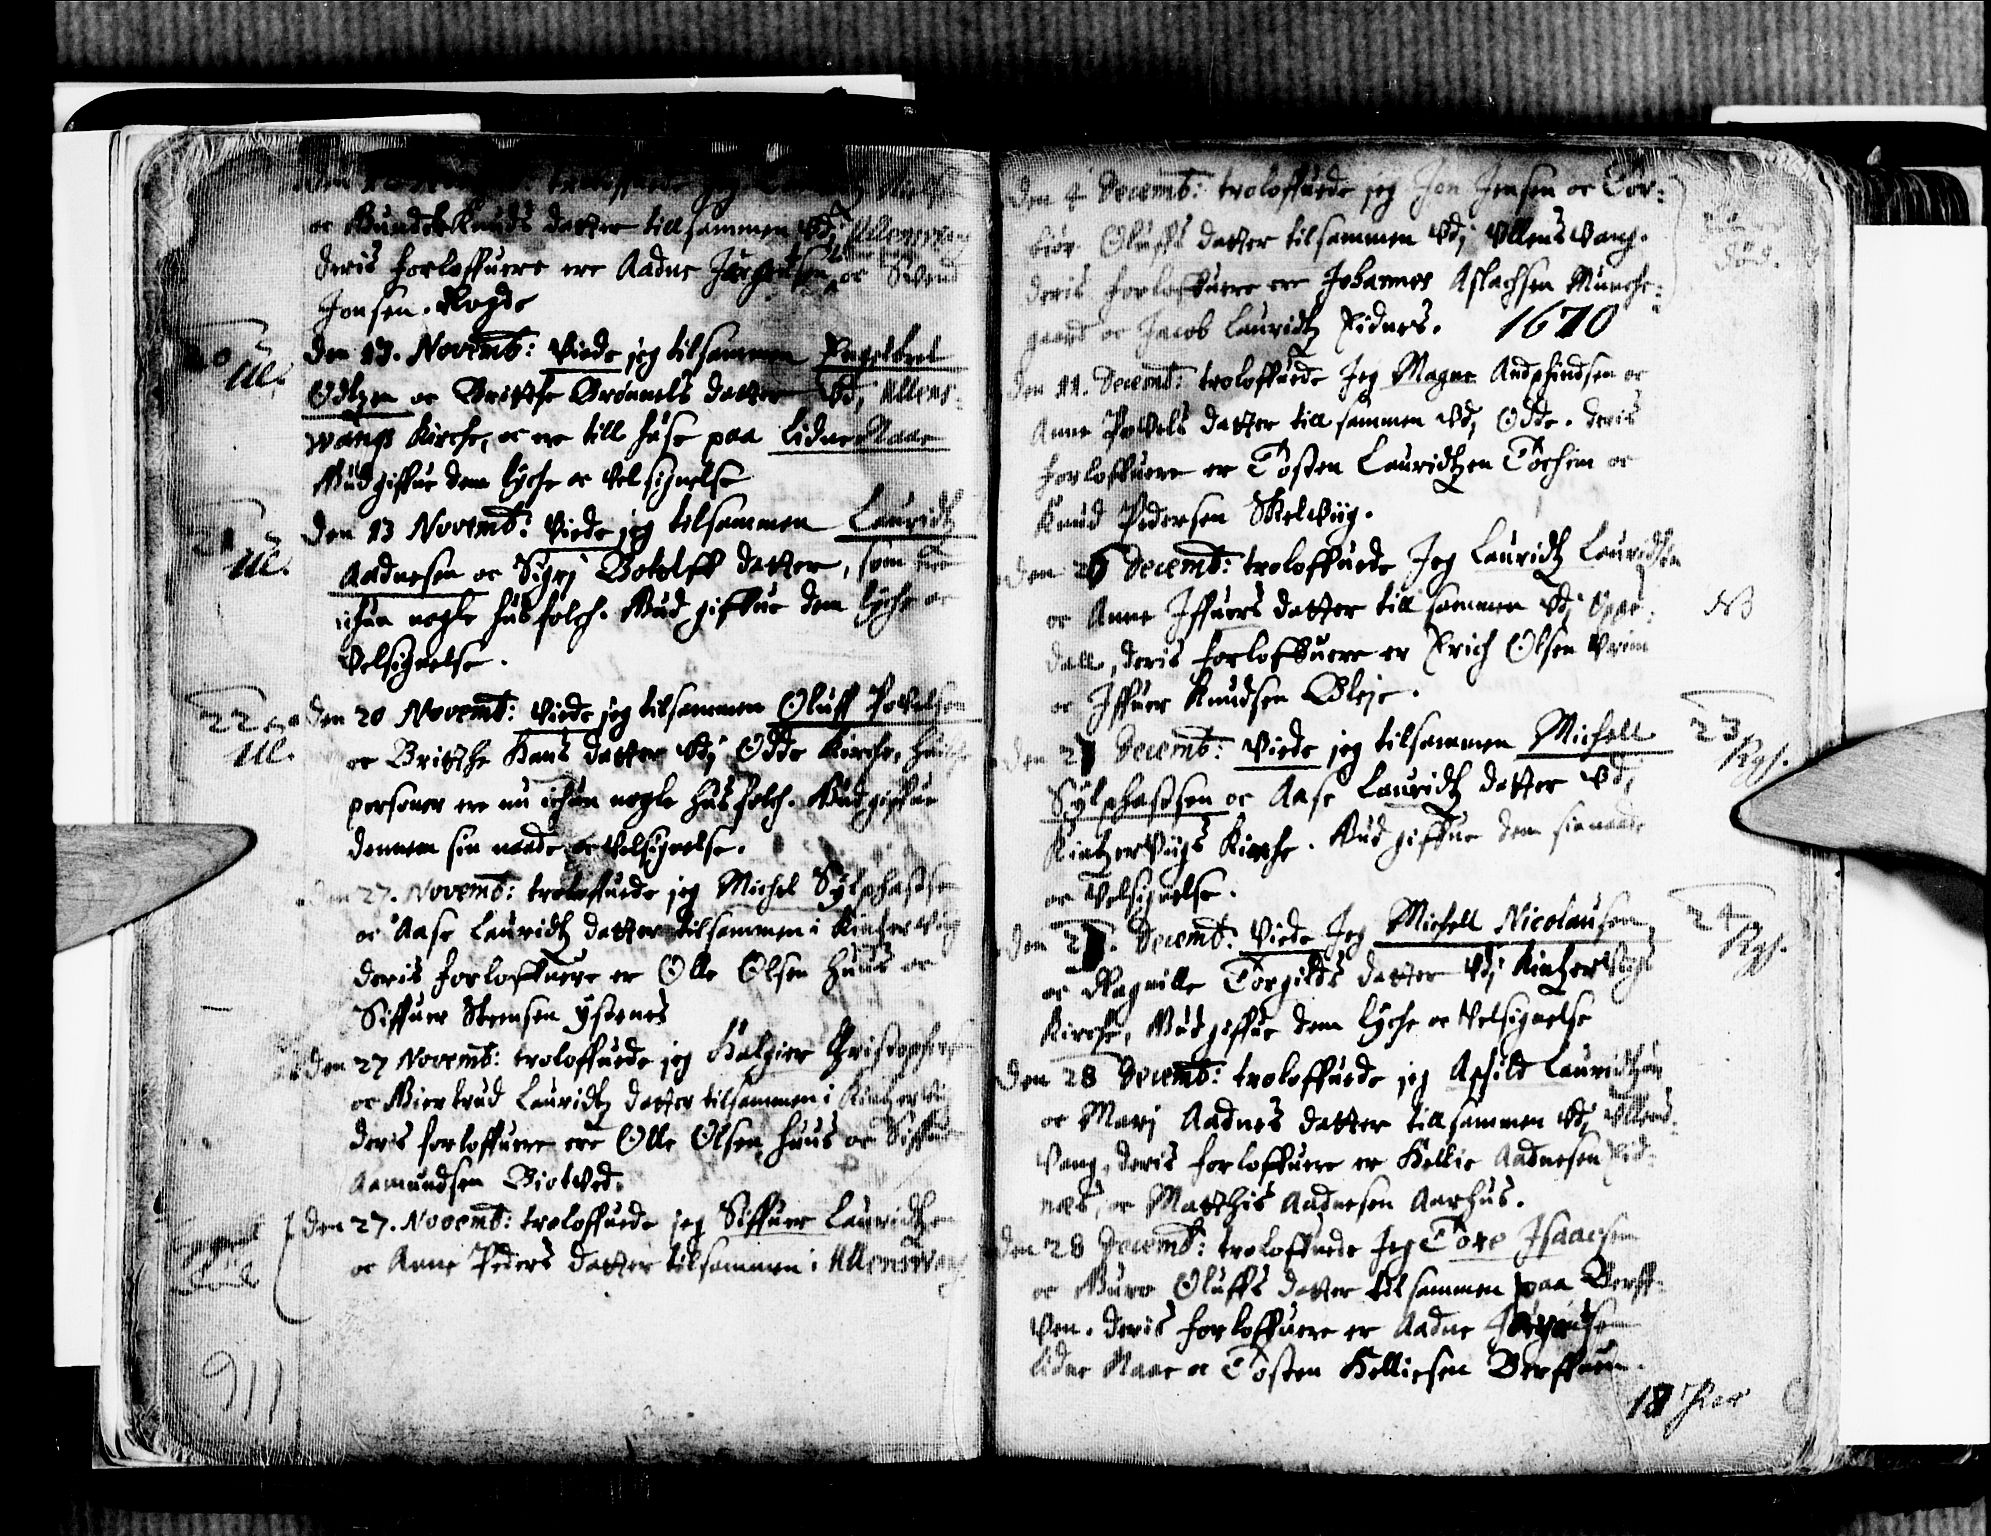 troloffuede jeg
oc Gunder Knuds datter till sammen vdj Ullenswang
deris forloffuere ere Aadne oc Swend
Jonsen. Rogde
20 Ul. Den 13. Novemb: Viede jeg tilsammen Engelbret
Odtzen oc Britthe Brønnels datter vdj Ullens-
wangs Kirche, oc ere till huse paa Lidne Naae
Gud giffue dem lyche oc velsignelse
21 Ul. Den 13 Novemb: Viede jeg tilsammen Lauridtz
Aadnesen oc Sigrj Botolff datter, som ere
ichun nogle husfolch. Gud giffue dem lyche oc
Velsignelse.
22 Ul. Den 20 Novemb: Viede jeg tilsammen Oluff Povelsen
oc Britthe Hans datter vdj Odde Kirche,
personer ere nu ichun nogle husfolch. Gud giffue
dennem sin naade oc velsignelse.
Den 27. Novemb: troloffuede jeg Michel Sylphastsen
oc Aase Lauridtz datter tilsammen i Kintzervig
deris forloffuere er Olle Olsen Huus oc
Siffuer Steensen Ystenes
Den 27 Novemb: troloffuede jeg Christophers
oc Giertrud Lauridtz datter tilsammen i Kintzervig
deris forloffuere ere Olle Olsen Huus oc Siffuer
Aamundsen Diotved.
Den 27. Novemb: troloffuede jeg Siffuer Lauridtzen
oc Anne Peders datter tilsammen i Ullenswang
911
Den 4 Decemb: troloffuede jeg Jon Jensen oc Tor-
bior Oluffs datter tilsammen vdj Ullensvang.
deris forloffuere ere Johannes Aslachsen Munche-
gaard oc Jacob Lauridtz Eidnes. 1670
Den 11. Decemb: troloffuede Jeg Magne Andphindsen oc
Anne Povels datter till sammen vdj Odde. deris
forloffuere er Tosten Lauridtzen Tochim oc
Knud Pedersen Skelviig.
Den 26 Decemb: troloffuede Jeg Lauridtz Lauridtzen
oc Anne Iffuers datter till sammen vdj Oppe-
dall, deris forloffuere er Erich Olsen Vrim
oc Iffuer Knudsen Bleje.
NB
Den 27 Decemb: Viede jeg tilsammen Michell 23
Sylphastsen oc Aase Lauridtz datter vdj
Kintzerviigs Kirche. Gud giffue dem sin naade
oc Velsignelse.
Den 27. Decemb: Viede Jeg Michell Nicolausen 24
oc Ragnille Torgilds datter vdj Kintzerviigs
Kirche, Gud giffue dem lyche oc Velsignelse
Den 28 Decemb: troloffuede jeg Aschild Lauridtzøn
oc Marj Aadnes datter till sammen vdj Ullens-
vang, deris forloffuere er Hellie Aadnesen Eid-
næs, oc Matthis Aadnesen Aarhus.
Den 28 Decemb: troloffuede Jeg Tore Isaacsen
oc Guro Oluffs datter til sammen paa Berff-
ven. deris forloffuere er Aadne
Lidne Naae oc Tosten Helliesen Berffuen.
18 Par